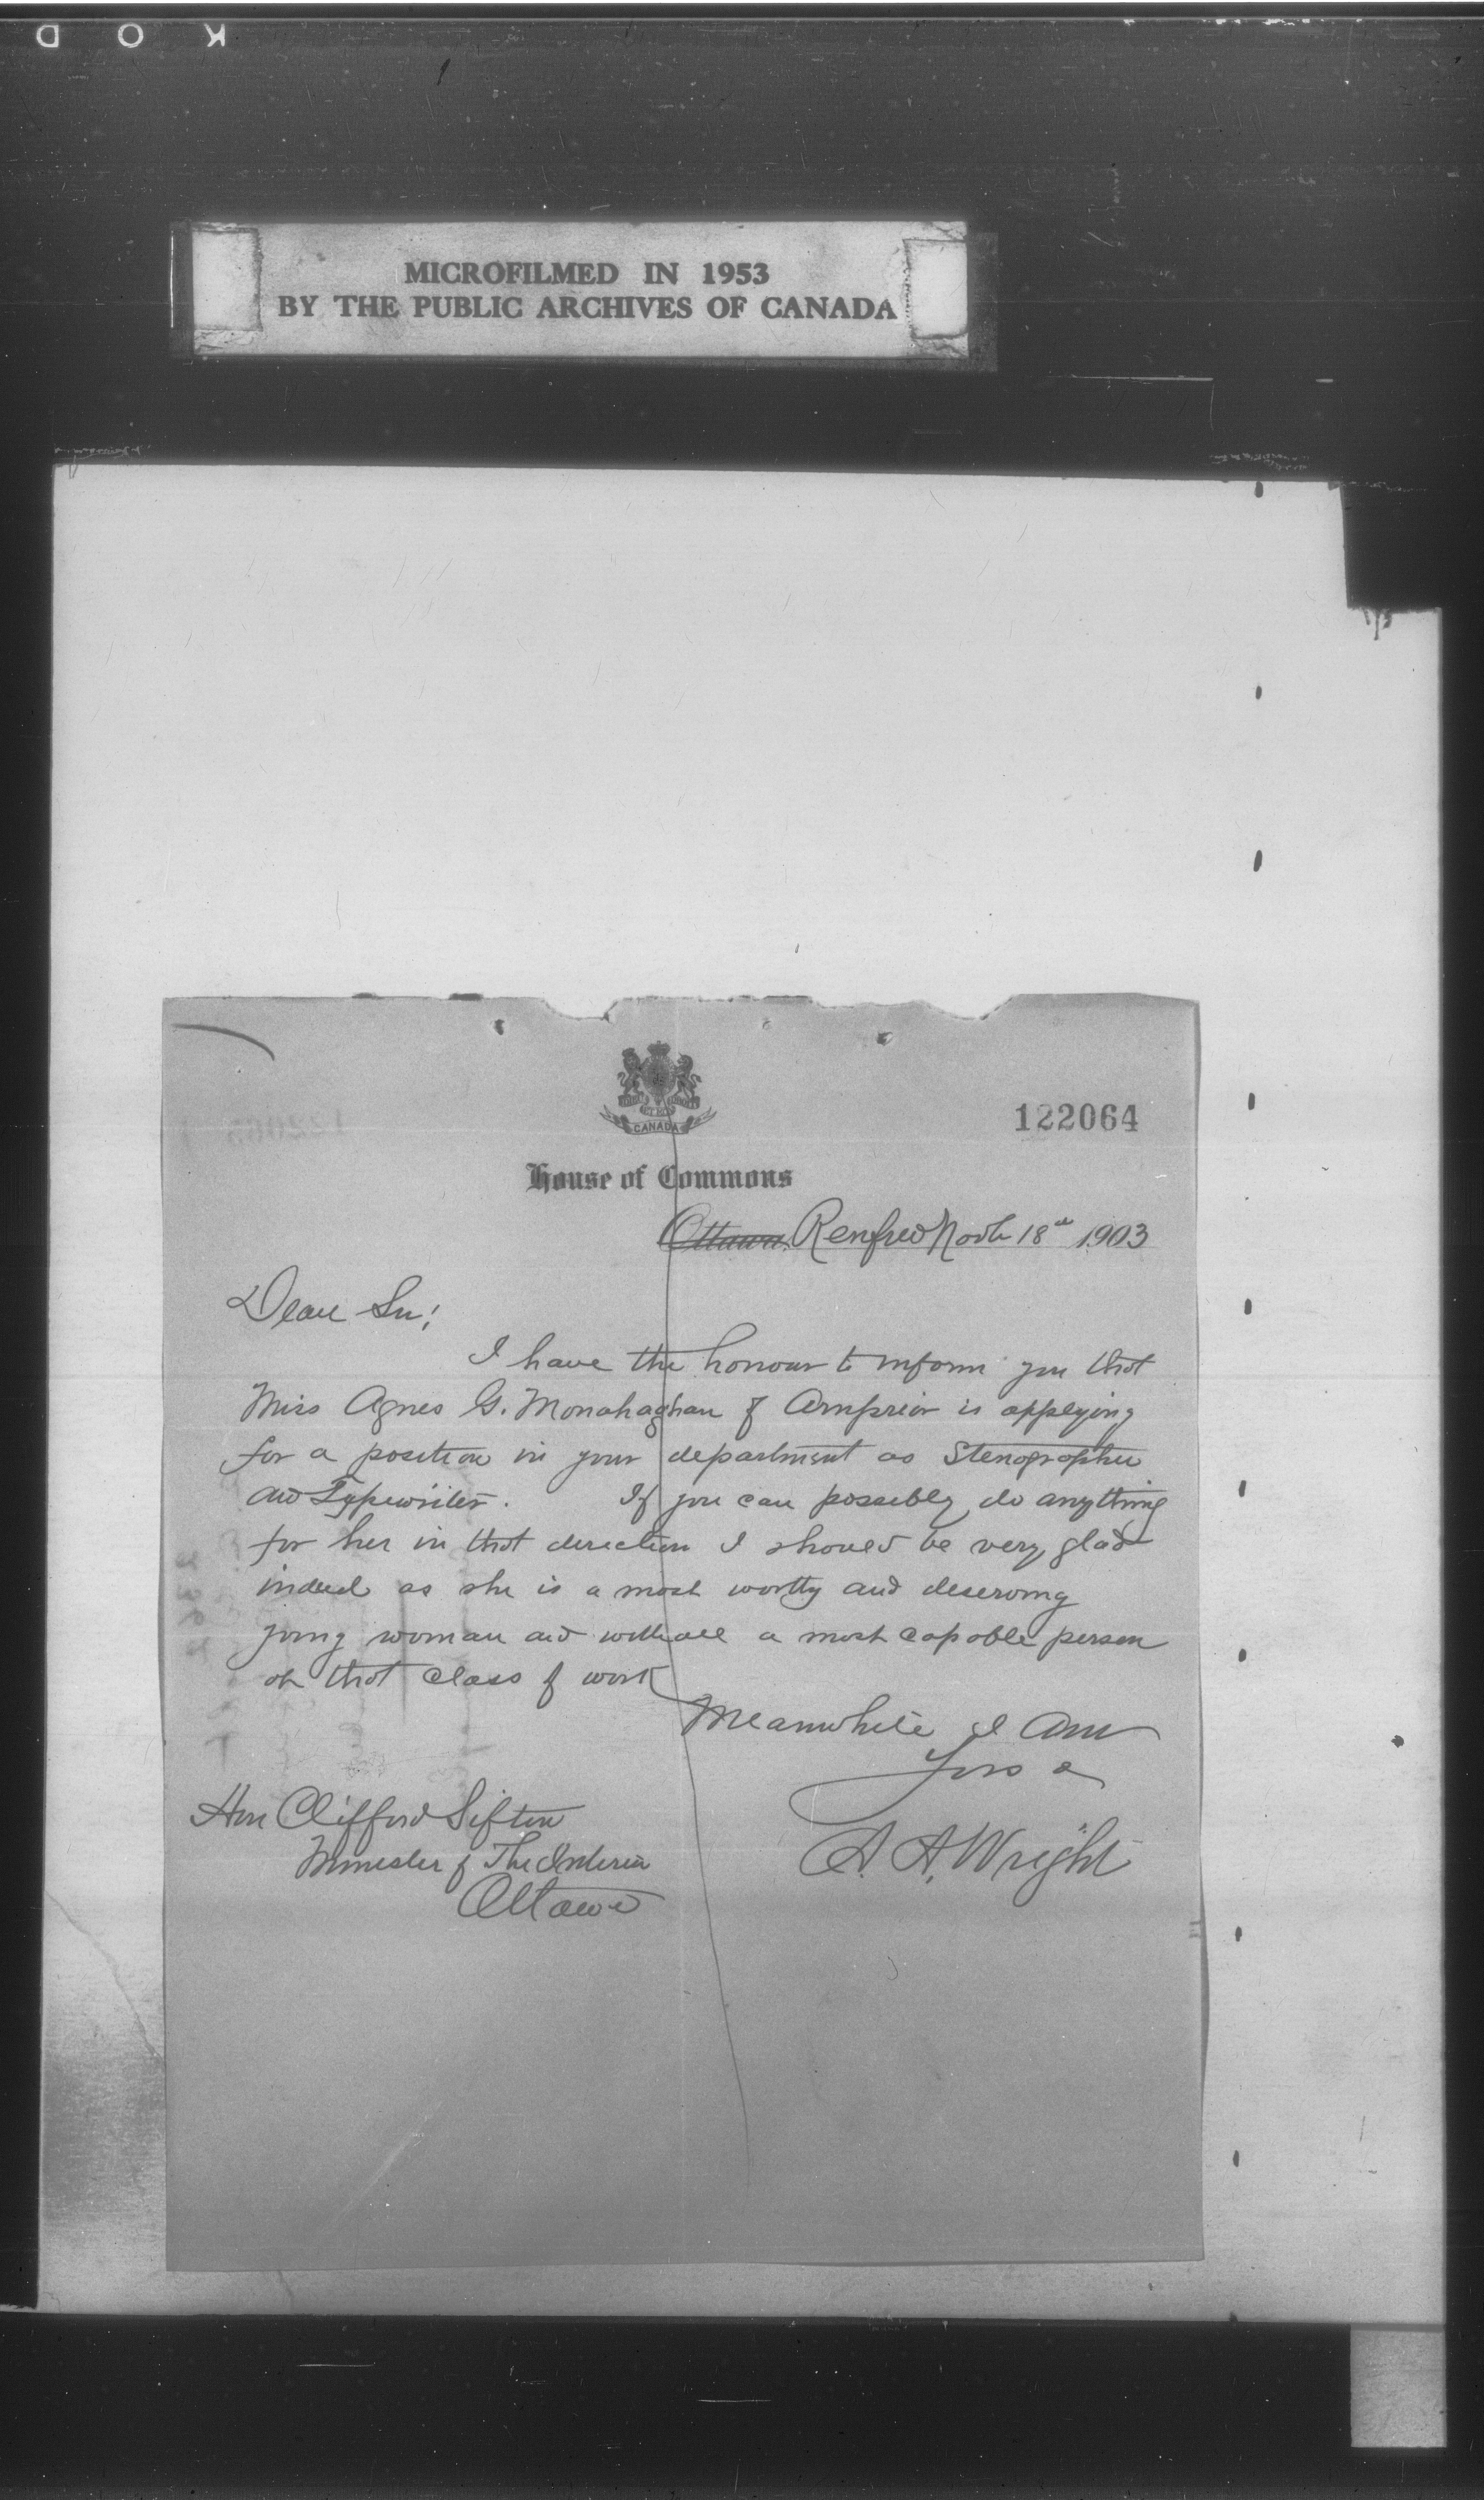 K O D
MICROFILMED IN 1953
BY THE PUBLIC ARCHIVES OF CANADA
CANADA
122064
House of Commons
Ottawa, Renfrew Novbr 18th 1903
Dear Sir;
I have the honour to inform you that
Miss Agnes G. Monahaghan of Arnprior is applying
for a position in your department as Stenographer
and Typewriter. If you can possibly do anything
for her in that direction I should be very glad
indeed as she is a most worthy and deserving
young woman and withall a most capable person
at that class of work
Meanwhile I am
Yrs
A. A. Wright
Hon Clifford Sifton
Minister of The Interior
Ottawa